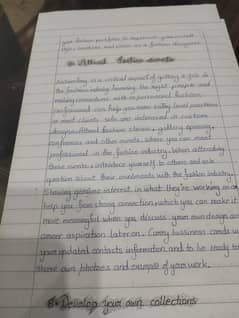 your fashion portfolio to represent your overall
style, aesthetic and vision as a fashion designer.
7- Attend fashion events
Networking is a critical aspect of getting a job in
the fashion industry. knowing the right people and
making connections with experienced fashion
professional can help you earn entry level positions
or meet clients who are interested in custom
designs. Attend fashion shows, gallery opening,
conferences and other events where you can meet
professional in the fashion industry. When attending
these events, introduce yourself to others and ask
question about their involments with the fashion industry.
Showing genuine interest in what they're working on can
help you form strong connection, which you can make it
more meaningful when you discuss your own design and
career aspiration lateron. Carry business cards with
your updated contacts information and to be ready to
share own photoes and exampls of your work.
8- Develop your own collections